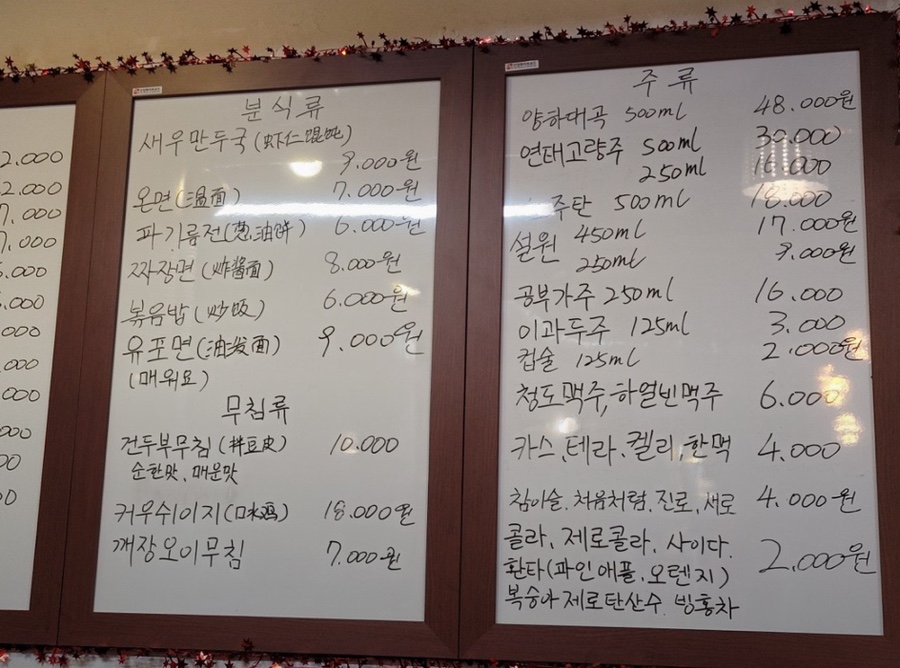 2.000
2.000
7.000
7.000
5.000
5.000
000
000
000
00
00
0
분식류
새우만두국(虾仁馄饨)
9.000원
온면(温面) 7.000원
파기름전(葱油餅) 6.000원
짜장면(炸醬面) 8.000원
볶음밥(炒饭) 6.000원
유포면(油泼面) 9.000원
(매워요)
무침류
건두부무침(拌豆皮) 10.000
순한맛, 매운맛
커우쉬이지(口水鸡) 18.000원
깨장오이무침 7.000원
주류
양하대곡 500ml 48.000원
연태고량주 500ml 30.000
250ml 16.000
주탄 500ml 18.000
설원 450ml 17.000원
250ml 9.000원
공부가주 250ml 16.000
이과두주 125ml 3.000
컵술 125ml 2.000원
청도맥주,하얼빈맥주 6.000
카스.테라.켈리.한맥 4.000
참이슬.처음처럼.진로.새로 4.000원
콜라.제로콜라.사이다.
환타(파인애플.오렌지) 2.000원
복숭아제로탄산수.빙홍차